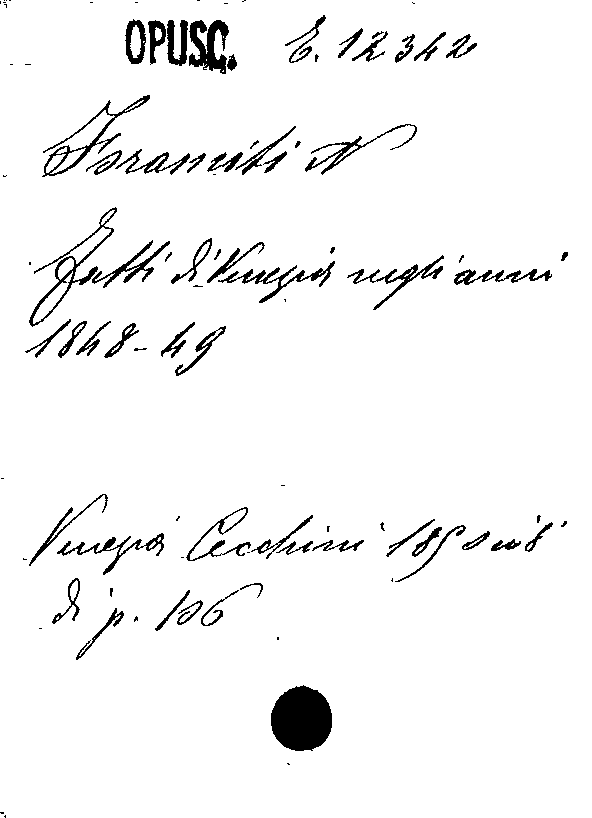 OPUSC. E. 12342
Foramiti N
Fatti di Venezia negli anni
1848-49
Venezia Cecchini 1850 in 8°
di p. 106